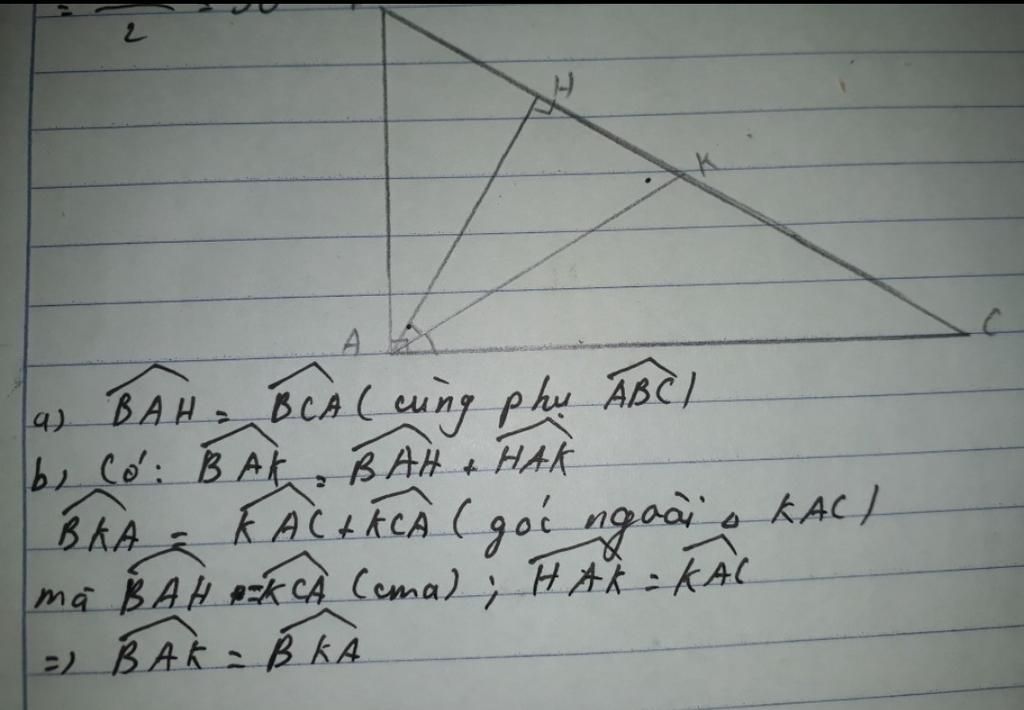 = 2
H
K
A
C
a) BAH = BCA (cùng phụ ABC)
b, Có: BAK = BAH + HAK
BKA = KAC + KCA (góc ngoài Δ KAC)
mà BAH = KCA (cma) ; HAK = KAC
=) BAK = BKA